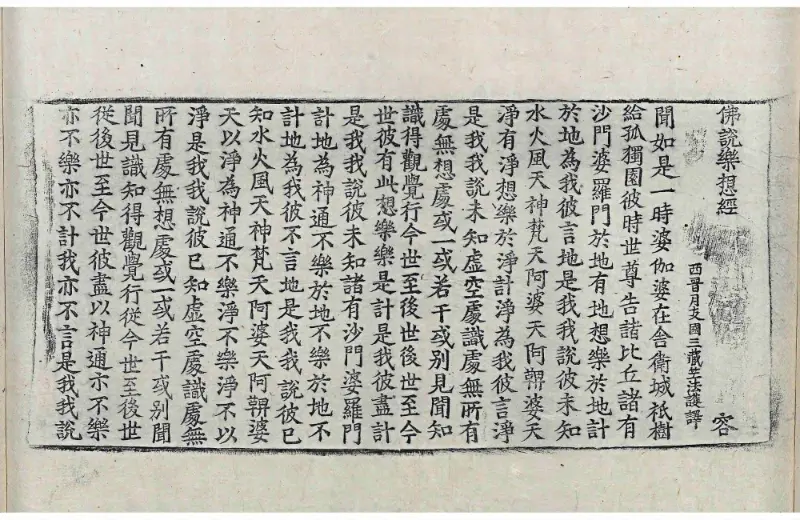 佛說樂想經
容
西晉月支國三藏竺法護譯
聞如是一時婆伽婆在舍衛城祇樹
給孤獨園彼時世尊告諸比丘諸有
沙門婆羅門於地有地想樂於地計
於地為我彼言地是我我說彼未知
水火風天神梵天阿婆天阿鞞婆天
淨有淨想樂於淨計淨為我彼言淨
是我我說未知虛空處識處無所有
處無想處或一或若干或別見聞知
識得觀覺行今世至後世後世至今
世彼有此想樂樂是計是我彼盡計
是我我說彼未知諸有沙門婆羅門
計地為神通不樂於地不樂於地不
計地為我彼不言地是我我說彼已
知水火風天神梵天阿婆天阿鞞婆
天以淨為神通不樂淨不樂淨不以
淨是我我說彼已知虛空處識處無
所有處無想處或一或若干或別聞
聞見識知得觀覺行從今世至後世
從後世至今世彼盡以神通亦不樂
亦不樂亦不計我亦不言是我我說